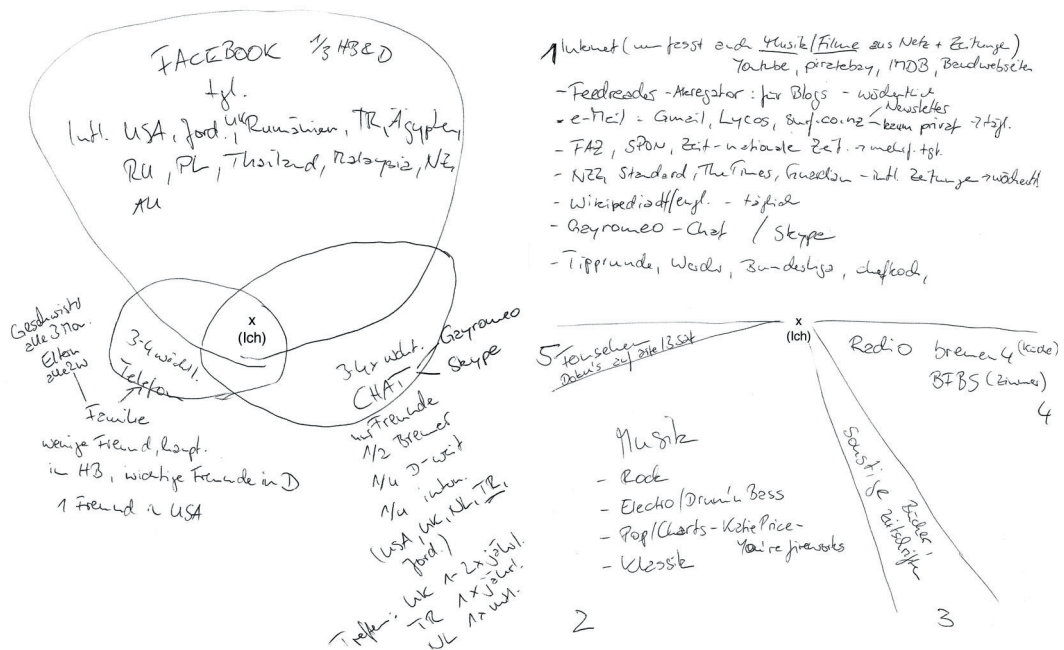 FACEBOOK 1/3 HB & D
tgl.
Intl. USA, Jord., UK, Rumänien, TR, Ägypten,
RU, PL, Thailand, Malaysia, NZ,
AU
x
(Ich)
Geschwister
alle 3 Mon.
Eltern
alle 2W
3-4 wöchtl.
Telefon
Familie
wenige Freund, haupt.
in HB, wichtige Freunde in D
1 Freund in USA
3-4x wöcht.
CHAT
Gayromeo
Skype
nur Freunde
1/2 Bremer
1/4 D-weit
1/4 intern.
(USA, UK, NL, TR,
Jord.)
Treffen: UK 1-2x jährl.
TR 1x jährl.
NL 1x mtl.
1 Internet (umfasst auch Musik/Filme aus Netz + Zeitunge)
Youtube, piratebay, IMDB, Bandwebseiten
- Feedreader - Aggregator: für Blogs - wöchentlich
- e-Mail: Gmail, Lycos, surf.co.nz - kaum privat → tägl.
Newsletter
- FAZ, SPON, Zeit - nationale Zeit. → mehrf. tgl.
- NZZ, Standard, The Times, Guardian - intl. Zeitunge → wöchentl.
- Wikipedia dt/engl. - täglich
- Gayromeo - Chat / Skype
- Tipprunde, Werder, Bundesliga, chefkoch,
x
(Ich)
5 Fernsehen
Doku's auf arte/3sat
Radio bremen 4 (Küche)
BFBS (Zimmer)
4
Musik
- Rock
- Electro/Drum'n Bass
- Pop/Charts - Katie Price -
You're fireworks
- Klassik
2
Sonstige Bücher,
Zeitschriften
3